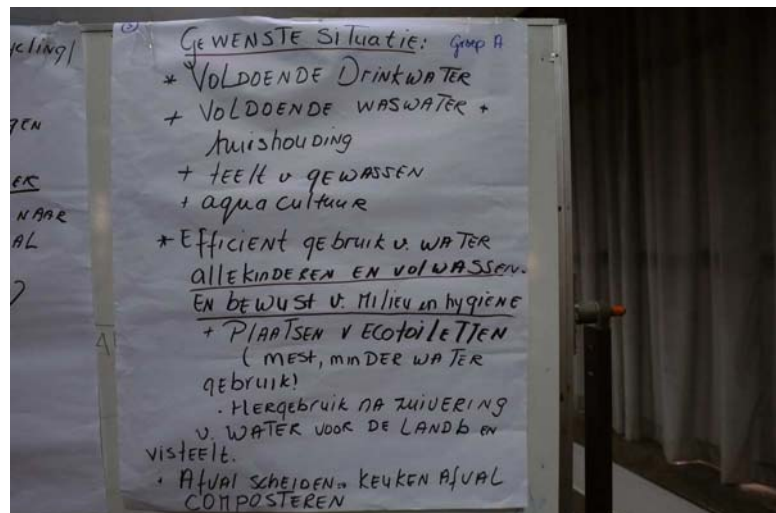 ycling/
GEN
ER
NAAR
AL
GEWENSTE SITUATIE: Groep A
* VOLDOENDE DrinkWATER
+ VOLDOENDE WASWATER +
huishouDING
+ teelt v gEWASSEN
+ aquacultuur
* Efficient gebruik v. WATER
alle kinDEREN EN VOlWASSEN.
EN bEWUSt v. Milieu en hygiëne
+ PlAATSEN V ECOtoilETTEN
( mest, minDER WATER
gEbruik!
. HERgEbruik NA zuivERING
v. WATER voor DE LANDb EN
visteelt.
. AfVAl scheiDEN = KEUKEN AfVAL
COMPOSTEREN